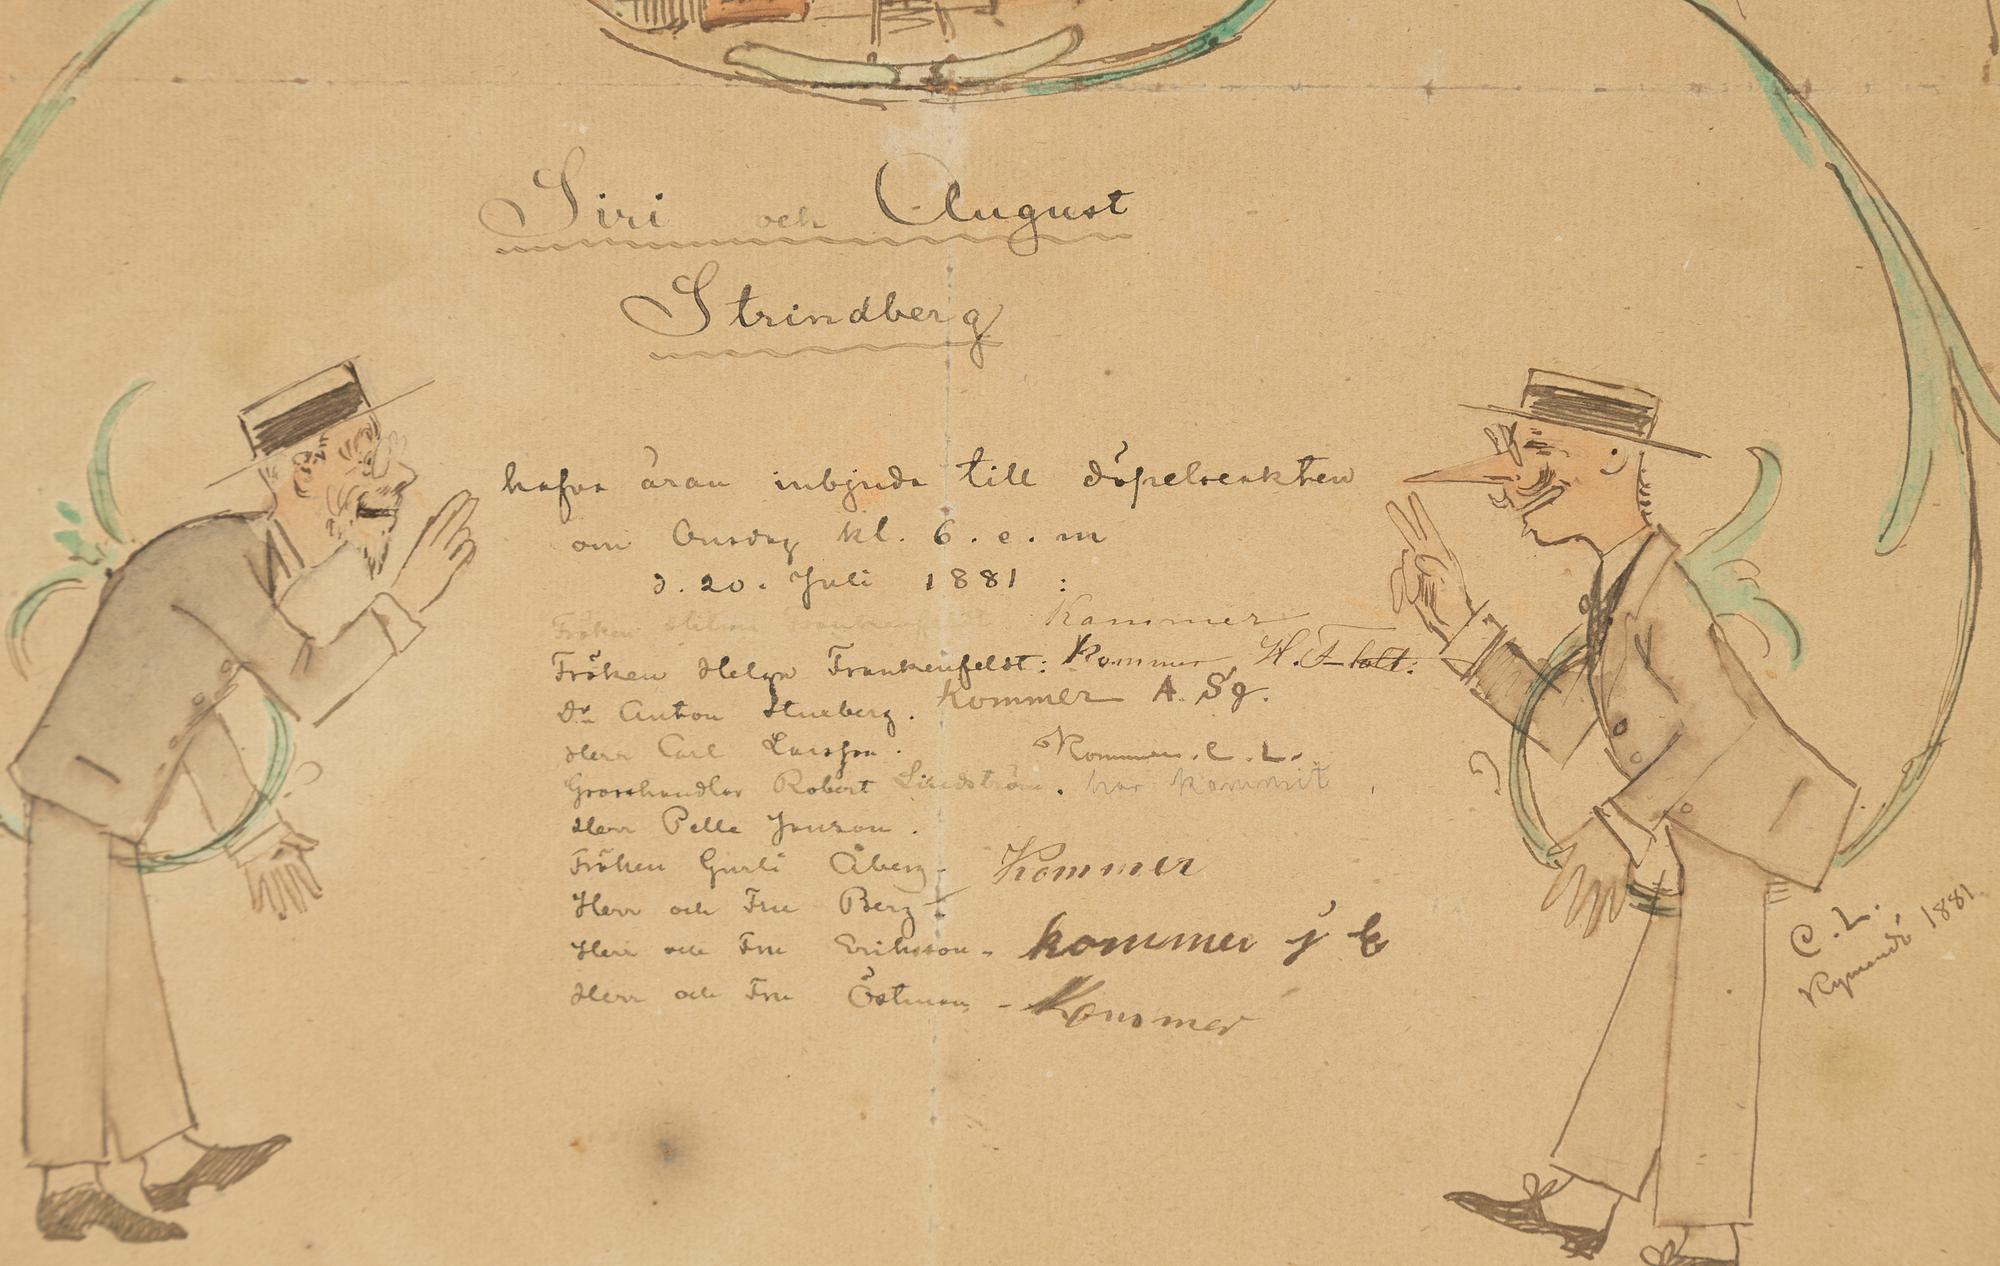 Siri och August
Strindberg
hafva äran inbjuda till döpelseakten
om Onsdag kl. 6. e. m
d. 20. Juli 1881 :
Fröken Kommer
Fröken Helga Frankenfeldt: Kommer H. F
Dr Anton Stuxberg. Kommer A. Sg.
Herr Carl Larsson. Kommer. C. L.
Grosshandlar Robert Lindström. har kommit
Herr Pelle Janson.
Fröken Gurli Åberg - Kommer
Herr och Fru Berg -
Herr och Fru Eriksson - kommer J E
Herr och Fru Östman - Kommer
C. L.
Kymendö 1881